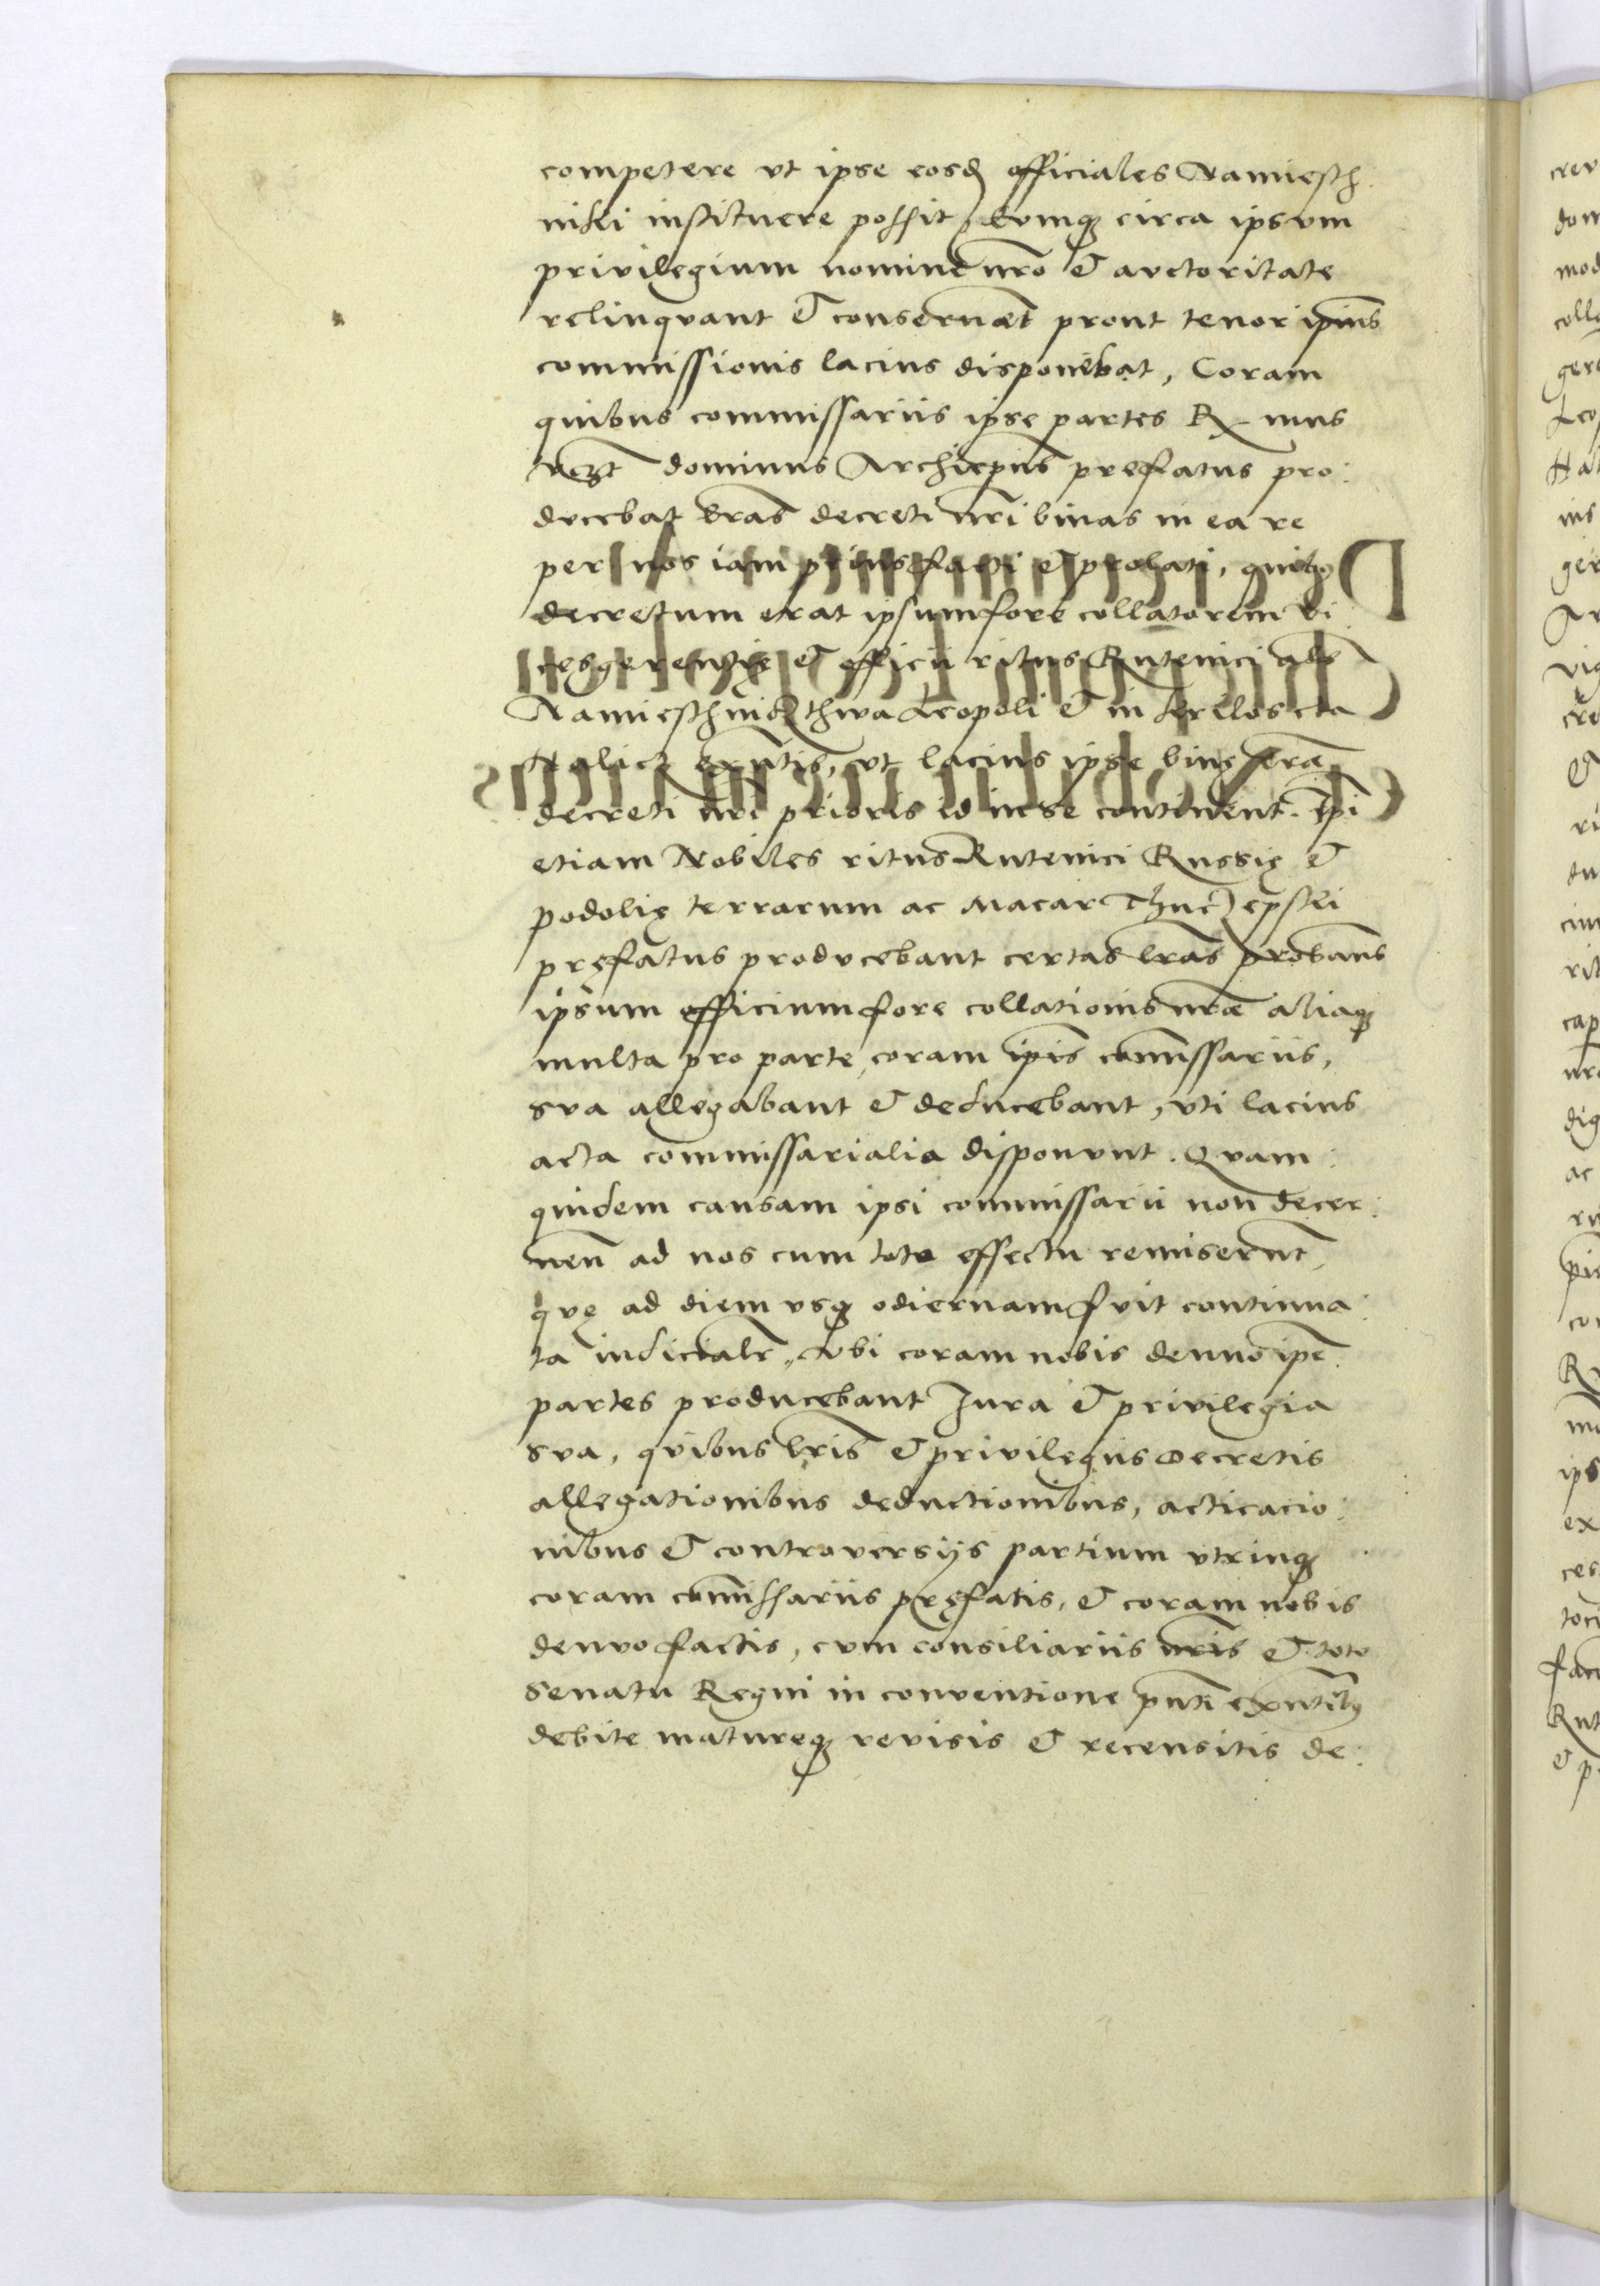 competere vt ipse eosd officiales Namiesch:
niki instituere possit, Eumq circa ipsum
privilegium nomine nro et auctoritate
relinquant et conseruent prout tenor ipius
commissionis lacius disponebat, Coram
quibus commissariis ipse partes R mus
dominus Archiepus prefatus pro:
ducebat lras decreti nri binas in ea re
per nos iam prius facti et prolati, quibus
decretum erat ipsum fore collatorem vi
cesgerentie et officii ritus Rutenici als
Namieschnicthwa Leopoli et in
Halicz exntis, vt lacius ipse bine lre
decreti nri prioris id in se continent. Ipi
etiam Nobiles ritus Rutenici Russie et
podolie terrarum ac Macar
prefatus producebant certas lras probans
ipsum officium fore collationis nre aliaq
multa pro parte, coram ipis commissariis,
sua allegabant et deducebant, vti lacius
acta commissarialia disponunt. Quam:
quidem causam ipsi commissarii non decer:
nen ad nos cum toto effectu remiserunt,
que ad diem usq odiernam fuit continua:
ta judicialr, vbi coram nobis denuo ipe
partes producebant Jura et privilegia
sua, quibus lris et privilegiis decretis
allegationibus deductionibus, acticacio:
nibus et controversiis partium vtrinq
coram commissariis prefatis, et coram nobis
denuo factis, cum consiliariis nris et toto
senatu Regni in conventione pnti exntibus
debite matureq revisis et recensitis de: